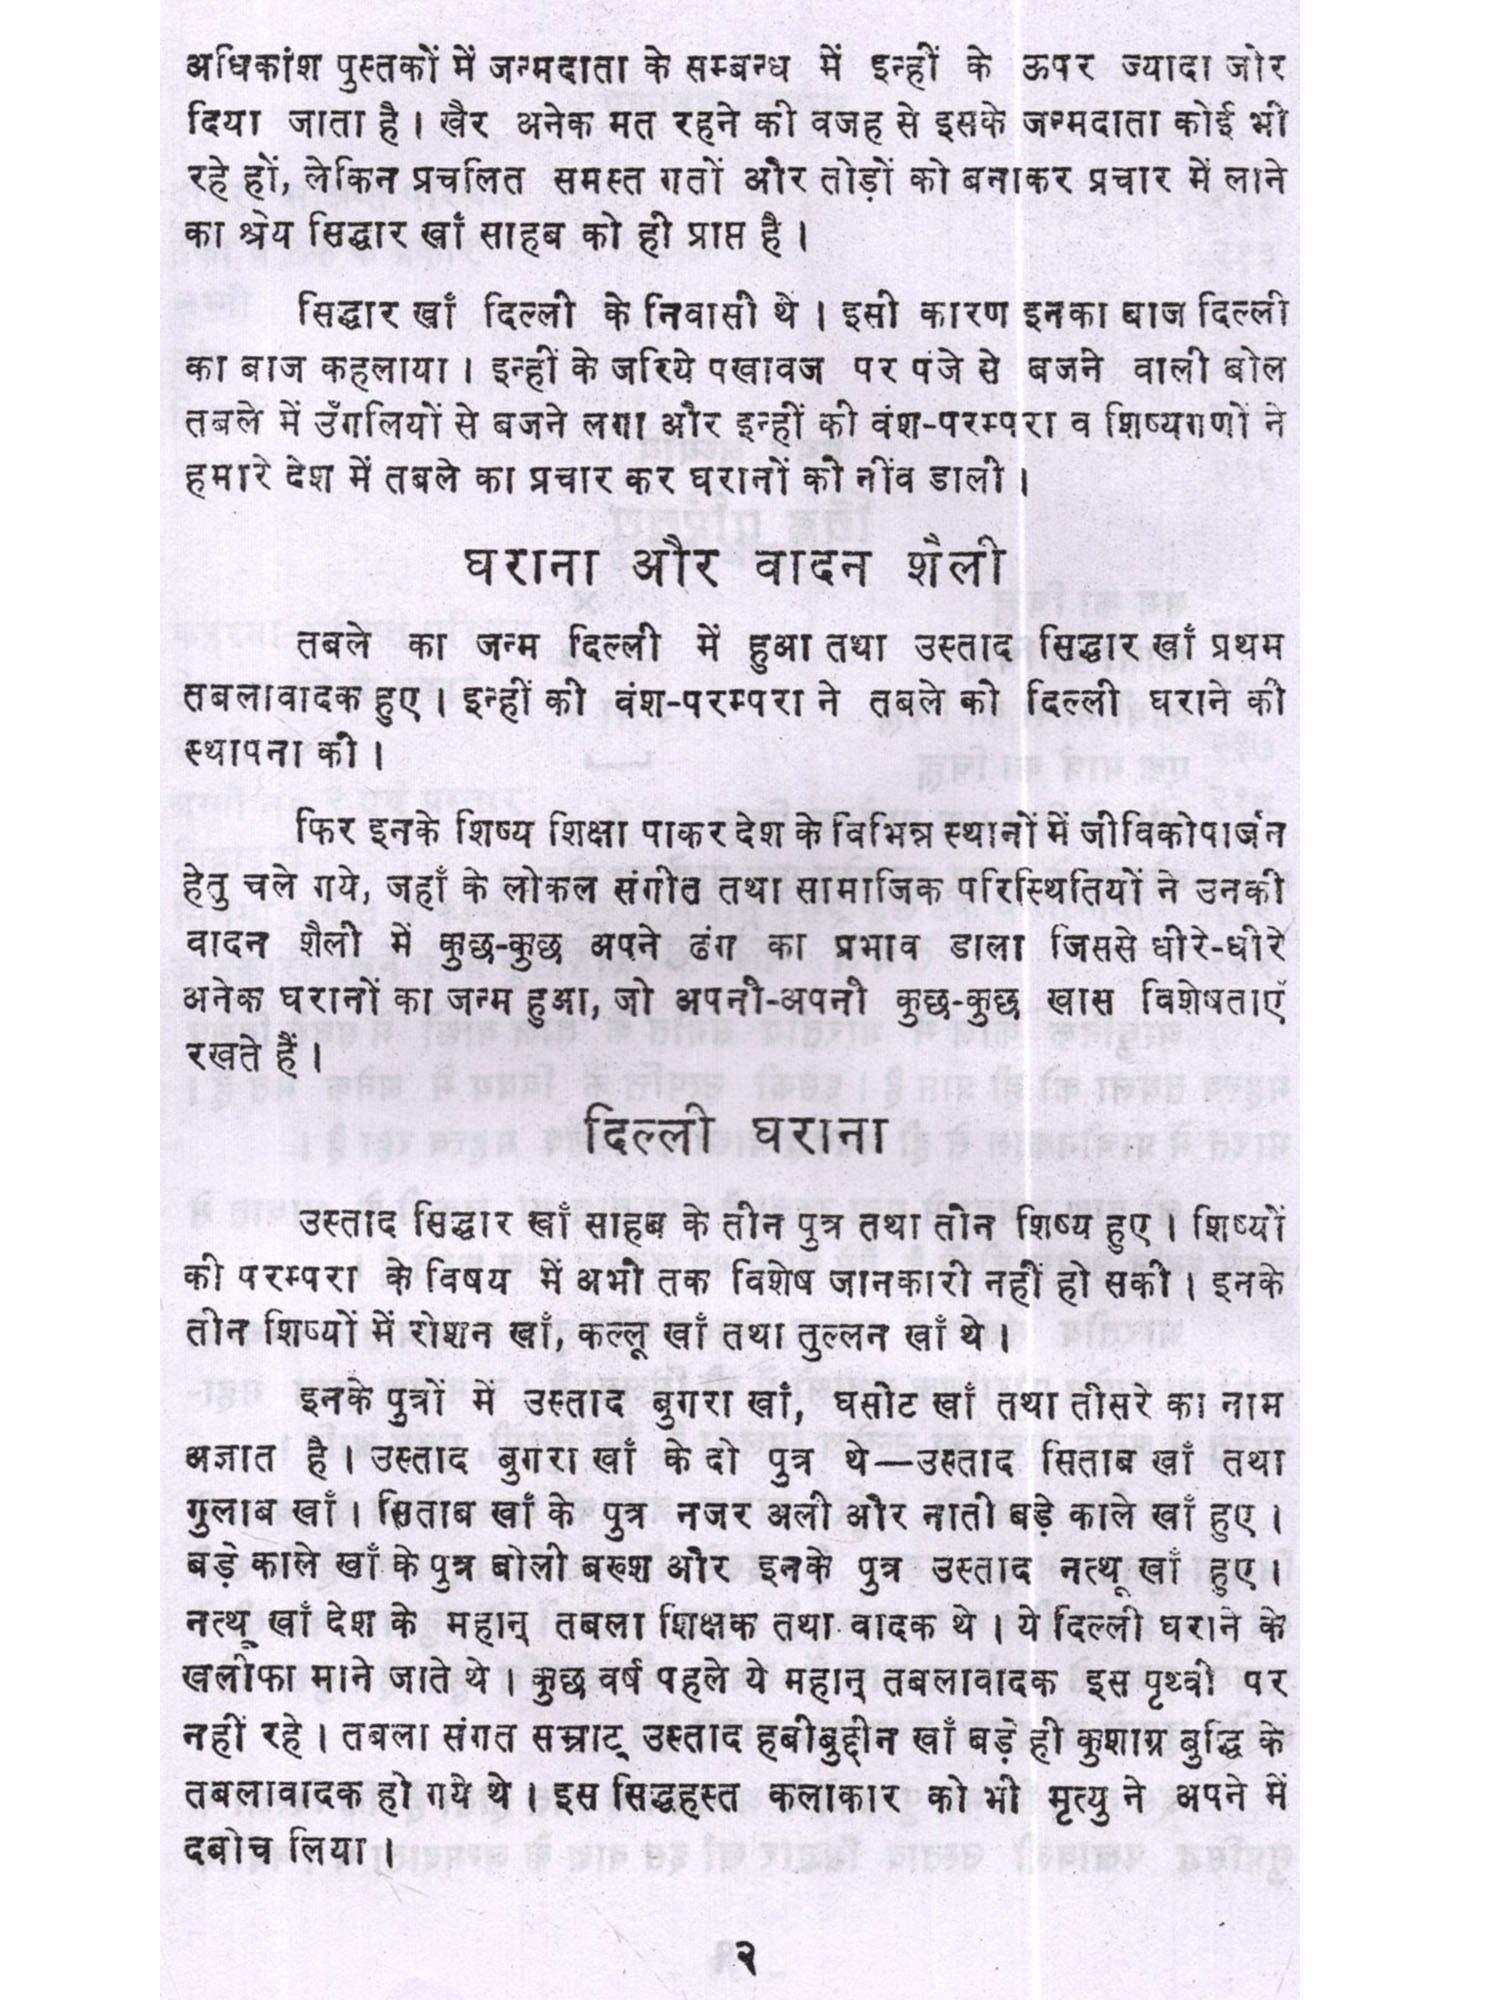 अधिकांश पुस्तकों में जन्मदाता के सम्बन्ध में इन्हीं के ऊपर ज्यादा जोर
दिया जाता है। खैर अनेक मत रहने की वजह से इसके जन्मदाता कोई भी
रहे हों, लेकिन प्रचलित समस्त गतों और तोड़ों को बनाकर प्रचार में लाने
का श्रेय सिद्धार खाँ साहब को ही प्राप्त है।
सिद्धार खाँ दिल्ली के निवासी थे। इसी कारण इनका बाज दिल्ली
का बाज कहलाया। इन्हीं के जरिये पखावज पर पंजे से बजने वाली बोल
तबले में उँगलियों से बजने लगा और इन्हीं की वंश-परम्परा व शिष्यगणों ने
हमारे देश में तबले का प्रचार कर घरानों की नींव डाली।
घराना और वादन शैली
तबले का जन्म दिल्ली में हुआ तथा उस्ताद सिद्धार खाँ प्रथम
तबलावादक हुए। इन्हीं की वंश-परम्परा ने तबले की दिल्ली घराने की
स्थापना की।
फिर इनके शिष्य शिक्षा पाकर देश के विभिन्न स्थानों में जीविकोपार्जन
हेतु चले गये, जहाँ के लोकल संगीत तथा सामाजिक परिस्थितियों ने उनकी
वादन शैली में कुछ-कुछ अपने ढंग का प्रभाव डाला जिससे धीरे-धीरे
अनेक घरानों का जन्म हुआ, जो अपनी-अपनी कुछ-कुछ खास विशेषताएँ
रखते हैं।
दिल्ली घराना
उस्ताद सिद्धार खाँ साहब के तीन पुत्र तथा तीन शिष्य हुए। शिष्यों
की परम्परा के विषय में अभी तक विशेष जानकारी नहीं हो सकी। इनके
तीन शिष्यों में रोशन खाँ, कल्लू खाँ तथा तुल्लन खाँ थे।
इनके पुत्रों में उस्ताद बुगरा खाँ, घसीट खाँ तथा तीसरे का नाम
अज्ञात है। उस्ताद बुगरा खाँ के दो पुत्र थे—उस्ताद सिताब खाँ तथा
गुलाब खाँ। सिताब खाँ के पुत्र नजर अली और नाती बड़े काले खाँ हुए।
बड़े काले खाँ के पुत्र बोली बख्श और इनके पुत्र उस्ताद नत्थू खाँ हुए।
नत्थू खाँ देश के महान् तबला शिक्षक तथा वादक थे। ये दिल्ली घराने के
खलीफा माने जाते थे। कुछ वर्ष पहले ये महान् तबलावादक इस पृथ्वी पर
नहीं रहे। तबला संगत सम्राट् उस्ताद हबीबुद्दीन खाँ बड़े ही कुशाग्र बुद्धि के
तबलावादक हो गये थे। इस सिद्धहस्त कलाकार को भी मृत्यु ने अपने में
दबोच लिया।
२